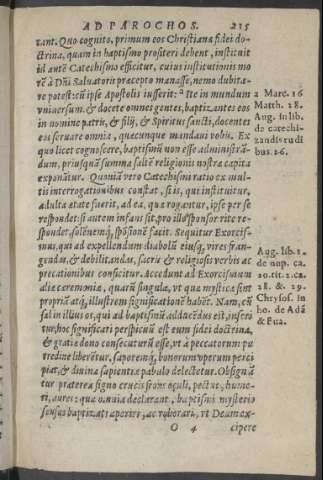 AD PAROCHOS. 215
tant. Quo cognito, primum eos Christianæ fidei do-
ctrina, quam in baptismo profiteri debent, instituit
id autẽ Catechismo efficitur, cuius institutionis mo
rẽ à Dñi Saluatoris præcepto manasse, nemo dubita-
re potest: cũ ipse Apostolis iusserit: ª Ite in mundum
vniuersum, & docete omnes gentes, baptizantes eos
in nomine patris, & filij, & Spiritus sancti, docentes
eos seruare omnia, quæcunque mandaui vobis. Ex
quo licet cognoscere, baptismũ non esse administrã-
dum, priusquã summa saltẽ religionis nostra capita
exponãtur. Quoniã vero Catechismi ratio ex mul
tis interrogationibus constat, si is, qui instituitur,
adulta ætate fuerit, ad ea, quæ rogantur, ipse per se
respondet: si autem infans sit, pro illo sponsor rite res-
pondet, solẽnemq́; spõsionẽ facit. Sequitur Exorcis-
mus, qui ad expellendum diabolũ eiusq́; vires fran-
gendas, & debilitandas, sacris & religiosis verbis ac
precationibus conficitur. Accedunt ad Exorcismum
aliæ ceremoniæ, quarũ singula, vt quæ mysticæ sint
propriã atq́; illustrem significationẽ habẽt. Nam, cũ
sal in illius os, qui ad baptismũ adducẽdus est, inseri
tur, hoc significari perspicuũ est eum fidei doctrina,
& gratiæ dono consecuturũ esse, vt à peccatorum pu
tredine liberẽtur, saporemq́; bonorum operum perci
piat, & diuinæ sapientiæ pabulo delectetur. Obsignã
tur præterea signo crucis frons, oculi, pectus, hume-
ri, aures: quæ omnia declarant, baptismi mysterio
sensus baptizati aperiri, ac roborari, vt Deum ex-
O 4 cipere
a Marc. 16
Matth. 28.
Aug. in lib.
de catechi-
zandis rudi
bus. 26.
Aug. lib. 1.
de nup. ca.
20. tit. 2. ca.
28. & 29.
Chrysos. in
ho. de Adã
& Eua.